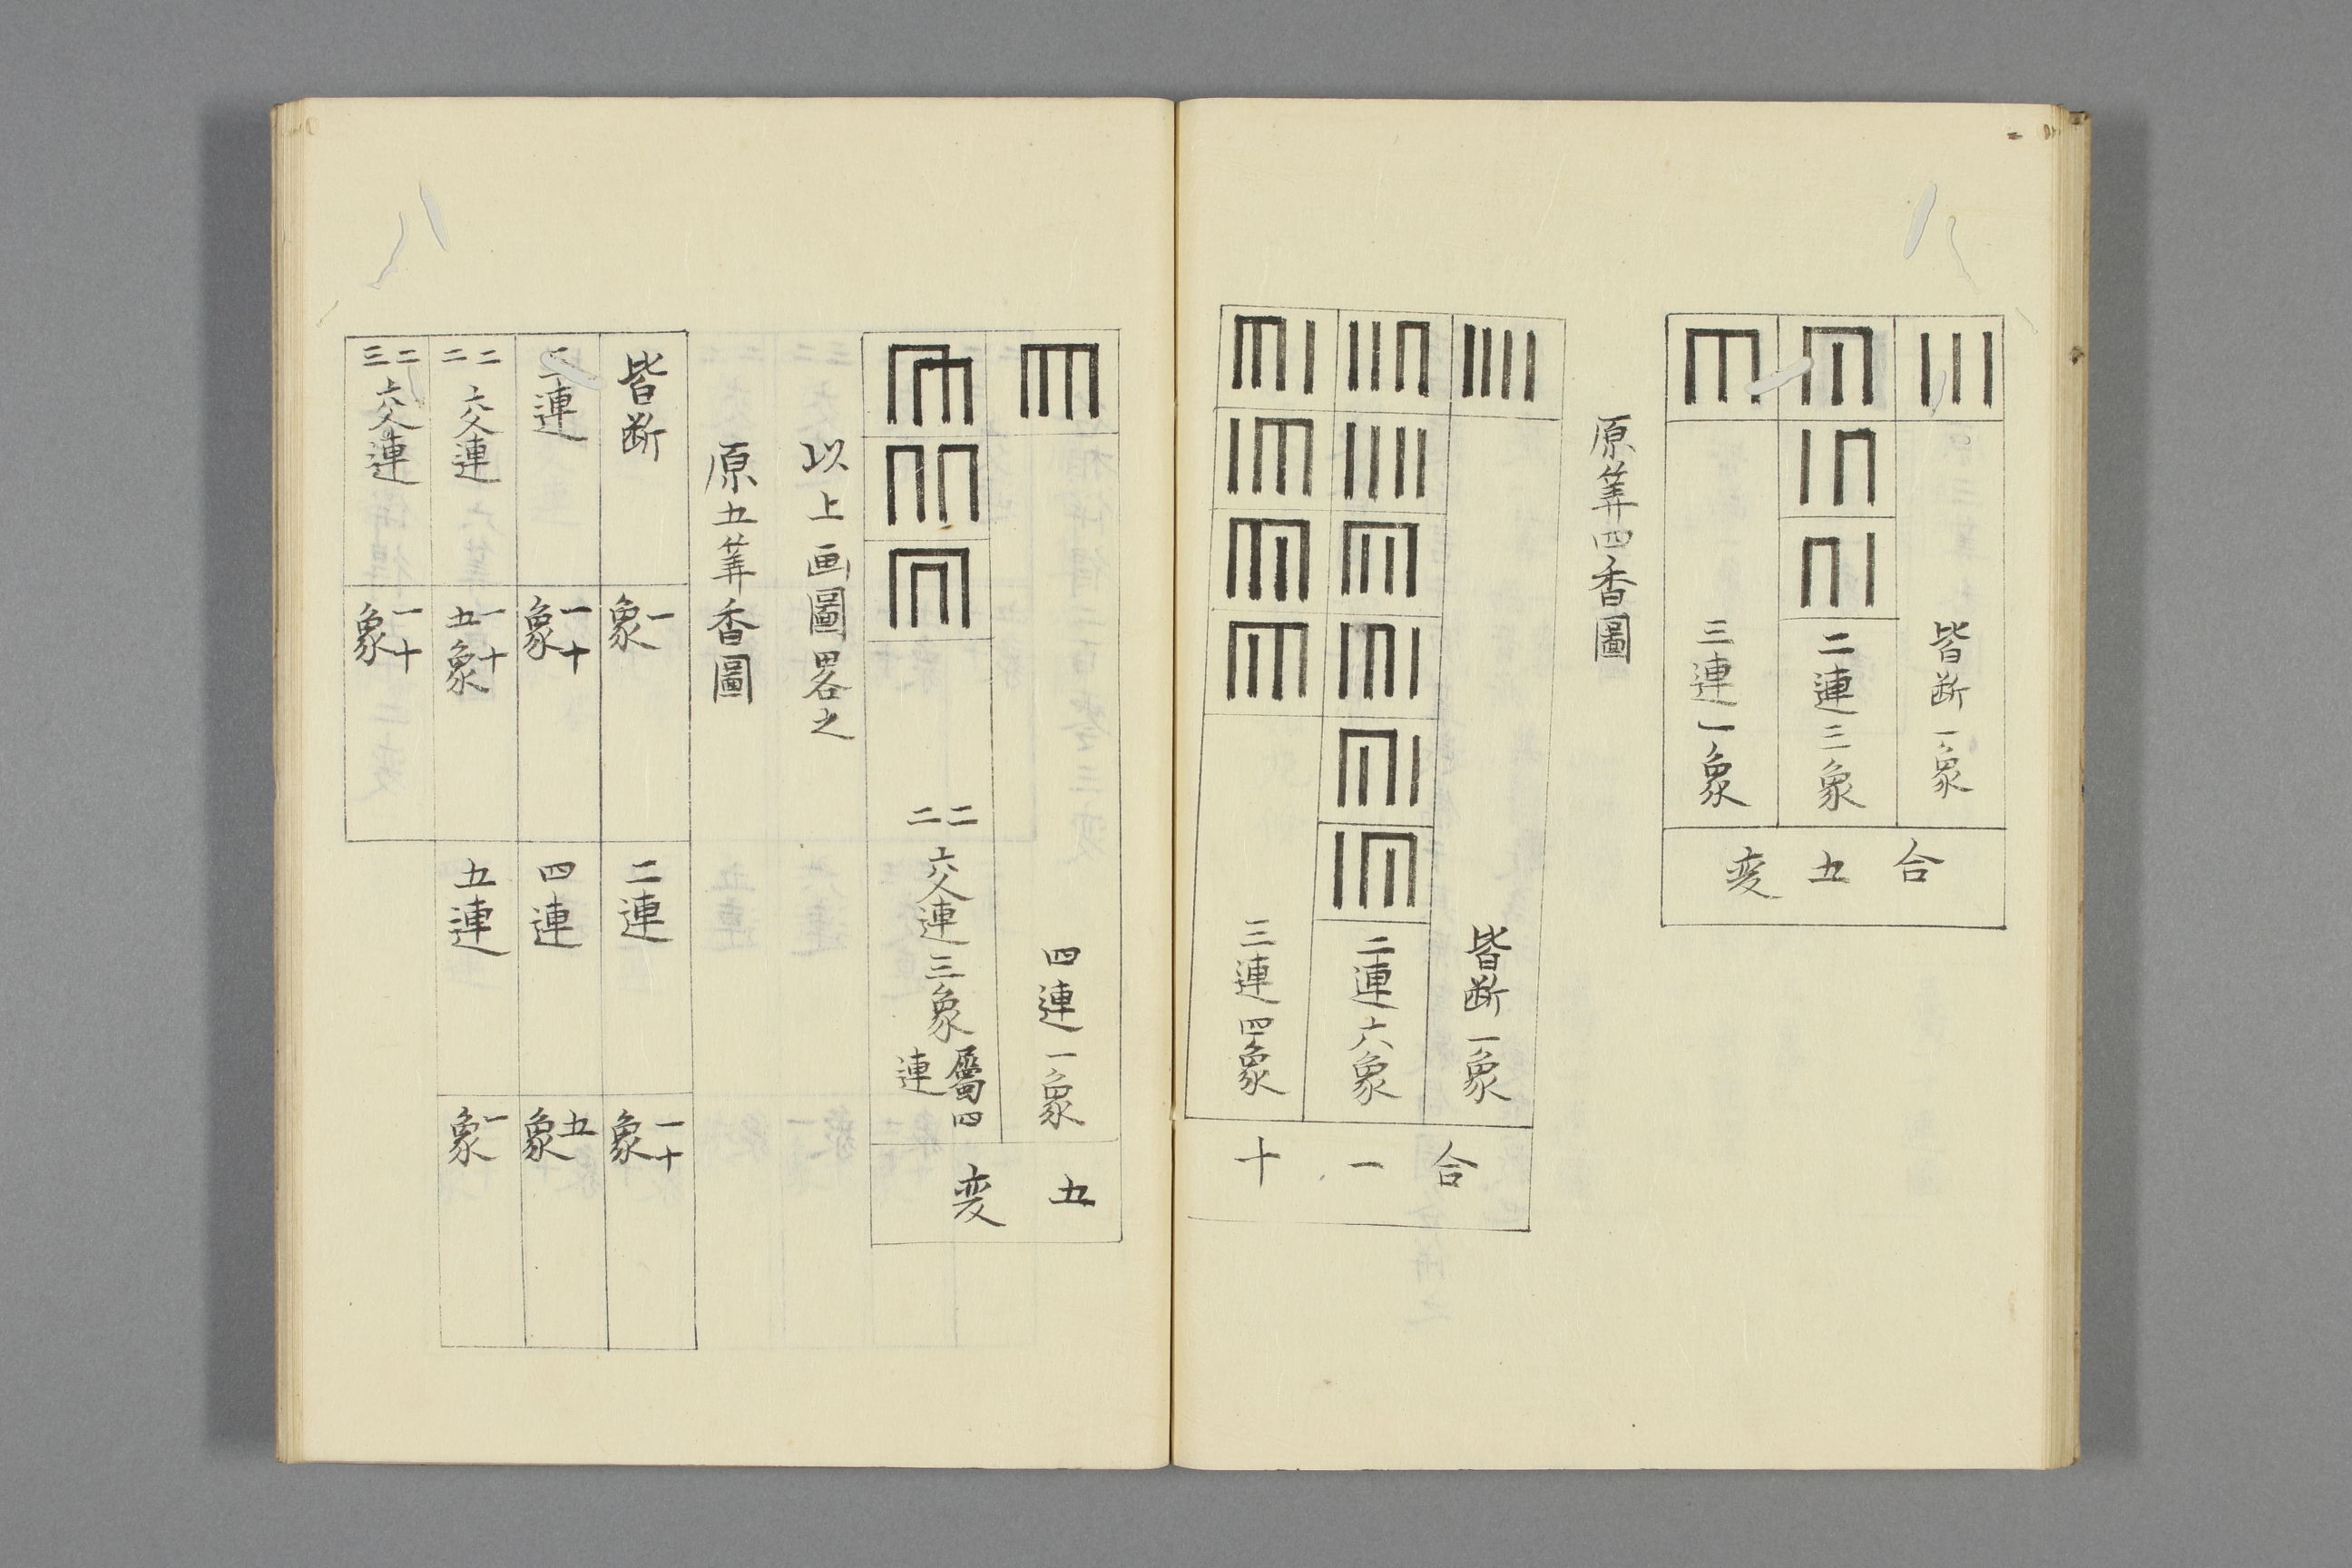 皆断一象
二連三象
三連一象
合五変
原筭四香圖
皆断一象
二連六象
三連四象
合一十
四連一象
二二交連三象屬四連
五変
以上画圖畧之
原五筭香圖
皆断
一象
二連
一十象
連
一十象
四連
五象
二二交連
一十五象
五連
一象
二三交連
一十象